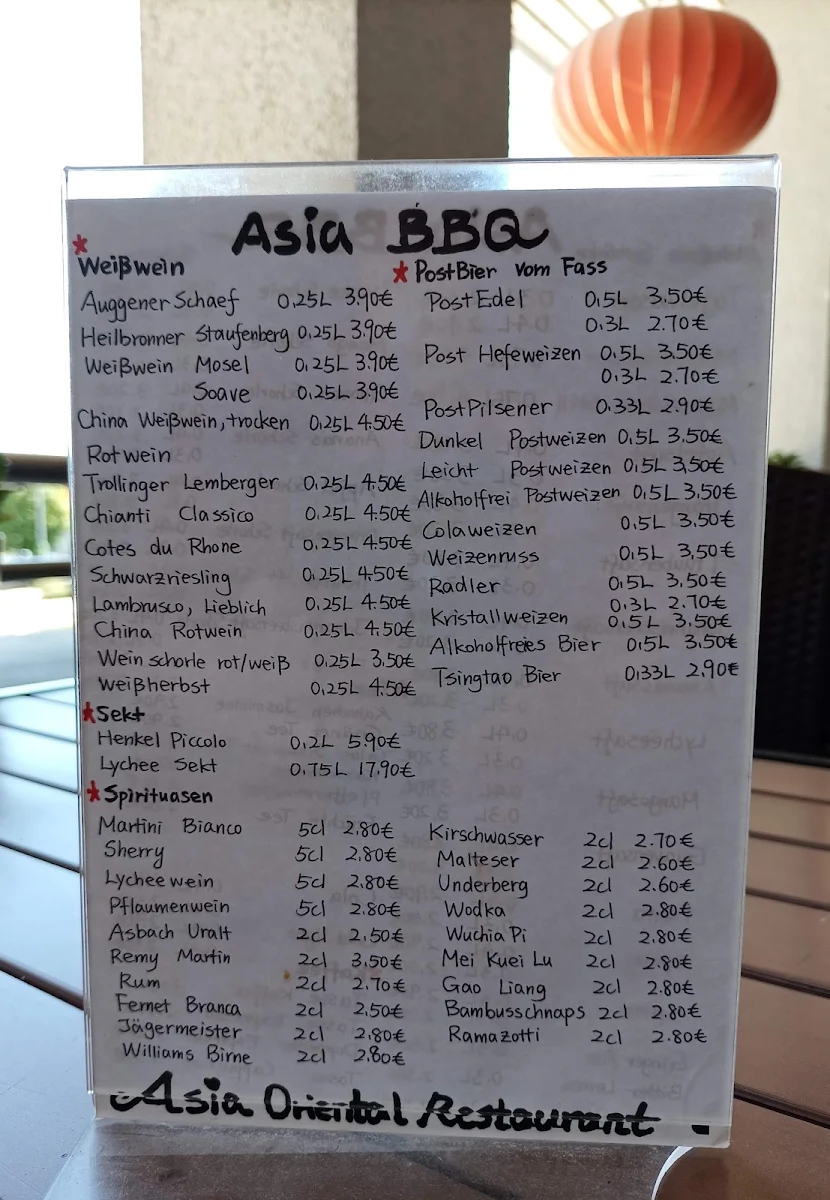 Asia BBQ
Weißwein
Auggener Schaef 0,25L 3.90€
Heilbronner Staufenberg 0,25L 3.90€
Weißwein Mosel 0,25L 3.90€
Soave 0,25L 3.90€
China Weißwein, trocken 0,25L 4.50€
Rotwein
Trollinger Lemberger 0,25L 4.50€
Chianti Classico 0,25L 4.50€
Cotes du Rhone 0,25L 4.50€
Schwarzriesling 0,25L 4.50€
Lambrusco, Lieblich 0,25L 4.50€
China Rotwein 0,25L 4.50€
Wein schorle rot/weiß 0,25L 3.50€
Weißherbst 0,25L 4.50€
Sekt
Henkel Piccolo 0,2L 5.90€
Lychee Sekt 0.75L 17.90€
PostBier vom Fass
PostEdel 0,5L 3.50€
0,3L 2.70€
Post Hefeweizen 0,5L 3.50€
0,3L 2.70€
PostPilsener 0,33L 2.90€
Dunkel Postweizen 0,5L 3,50€
Leicht Postweizen 0,5L 3,50€
Alkoholfrei Postweizen 0,5L 3,50€
Colaweizen 0,5L 3,50€
Weizenruss 0,5L 3,50€
Radler 0,5L 3,50€
0,3L 2.70€
Kristallweizen 0,5L 3,50€
Alkoholfreies Bier 0,5L 3,50€
Tsingtao Bier 0,33L 2,90€
Spirituasen
Martini Bianco 5cl 2.80€
Sherry 5cl 2.80€
Lychee wein 5cl 2.80€
Pflaumenwein 5cl 2.80€
Asbach Uralt 2cl 2.50€
Remy Martin 2cl 3,50€
Rum 2cl 2.70€
Fernet Branca 2cl 2,50€
Jägermeister 2cl 2,80€
Williams Birne 2cl 2.80€
Kirschwasser 2cl 2.70€
Malteser 2cl 2.60€
Underberg 2cl 2.60€
Wodka 2cl 2.80€
Wuchia Pi 2cl 2.80€
Mei Kuei Lu 2cl 2.80€
Gao Liang 2cl 2.80€
Bambusschnaps 2cl 2.80€
Ramazotti 2cl 2.80€
Asia Oriental Restaurant